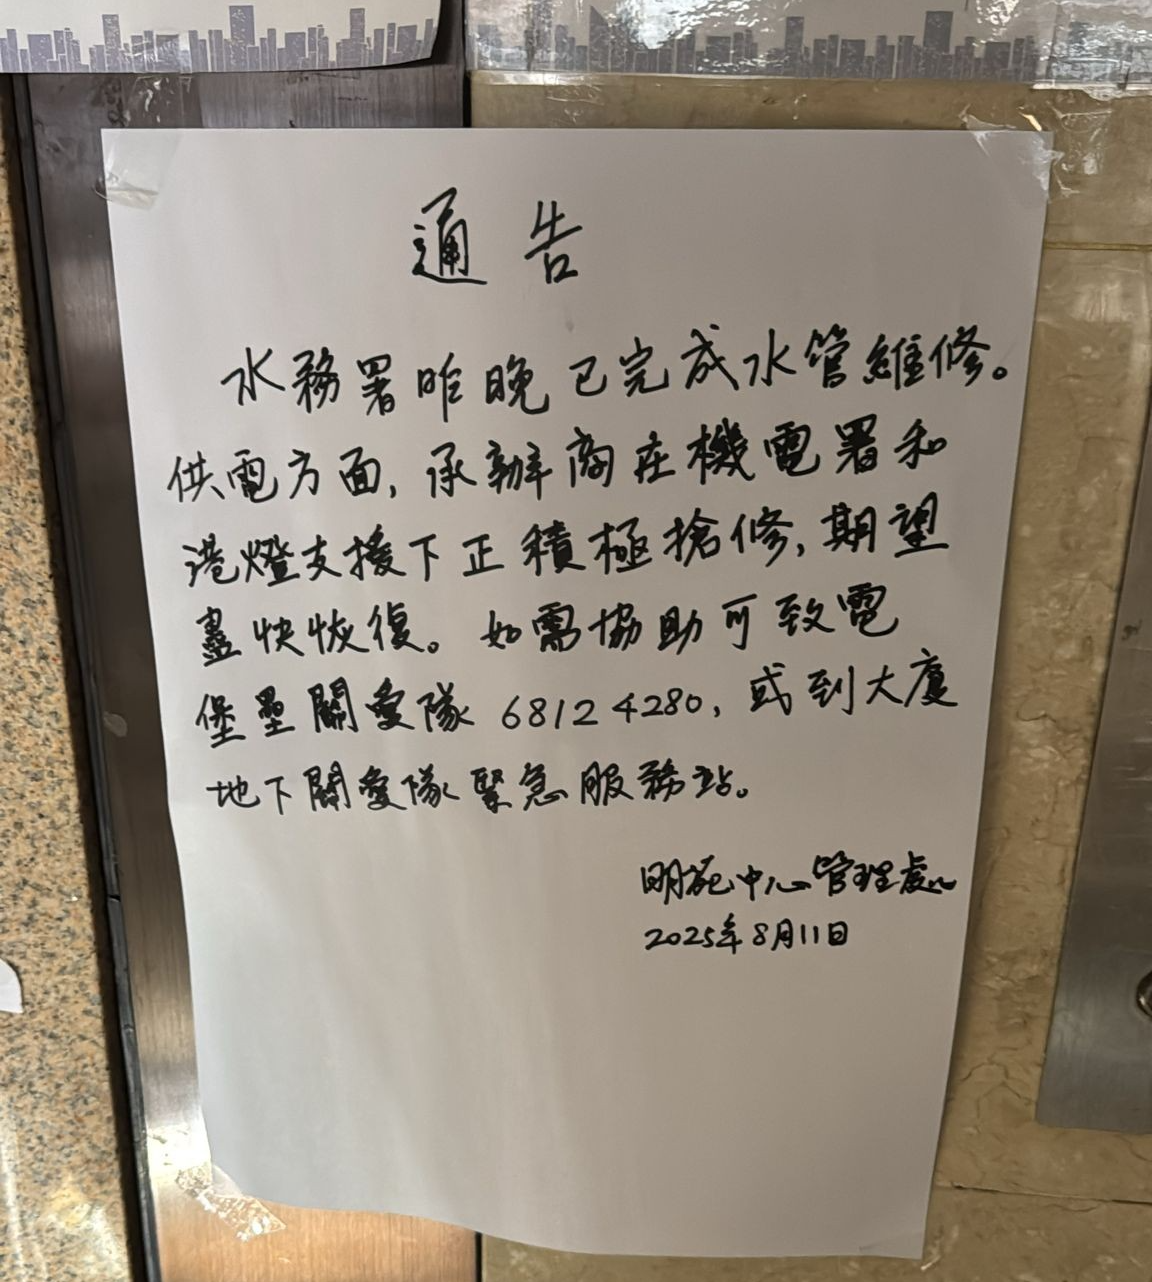 通告
水務署昨晚已完成水管維修。
供電方面,承辦商在機電署和
港燈支援下正積極搶修,期望
盡快恢復。如需協助可致電
堡壘關愛隊 68124280,或到大廈
地下關愛隊緊急服務站。
明苑中心管理處
2025年8月11日